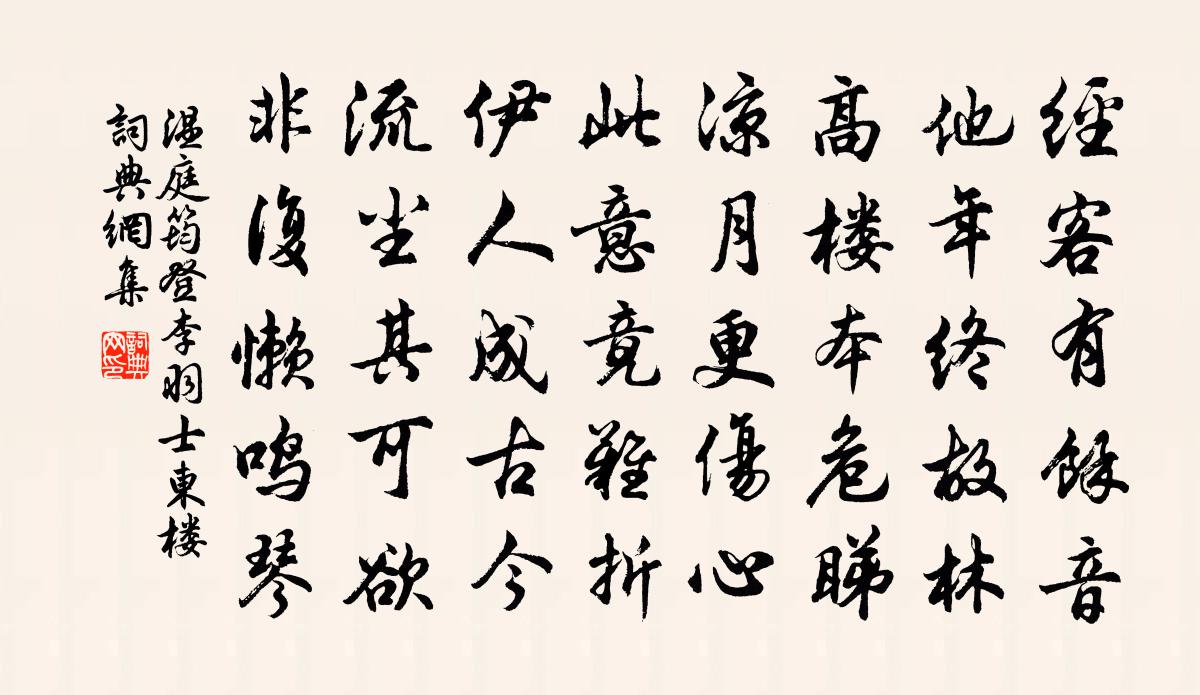 經客有餘音
他年終故林
高楼本危睇
涼月更傷心
此意竟難折
伊人成古今
流尘其可欲
非復懶鸣琴
温庭筠登李羽士東楼
詞典網集
詞典网印